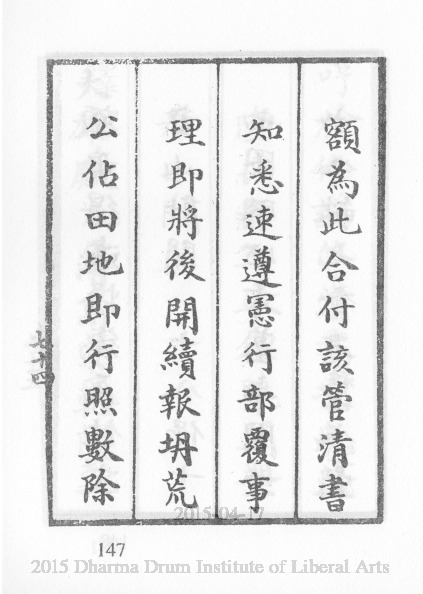 額為此合付該管清書
知悉速遵憲行部覆事
理即將後開續報坍荒
公佔田地即行照數除
七十四
2015-04-17
147
2015 Dharma Drum Institute of Liberal Arts